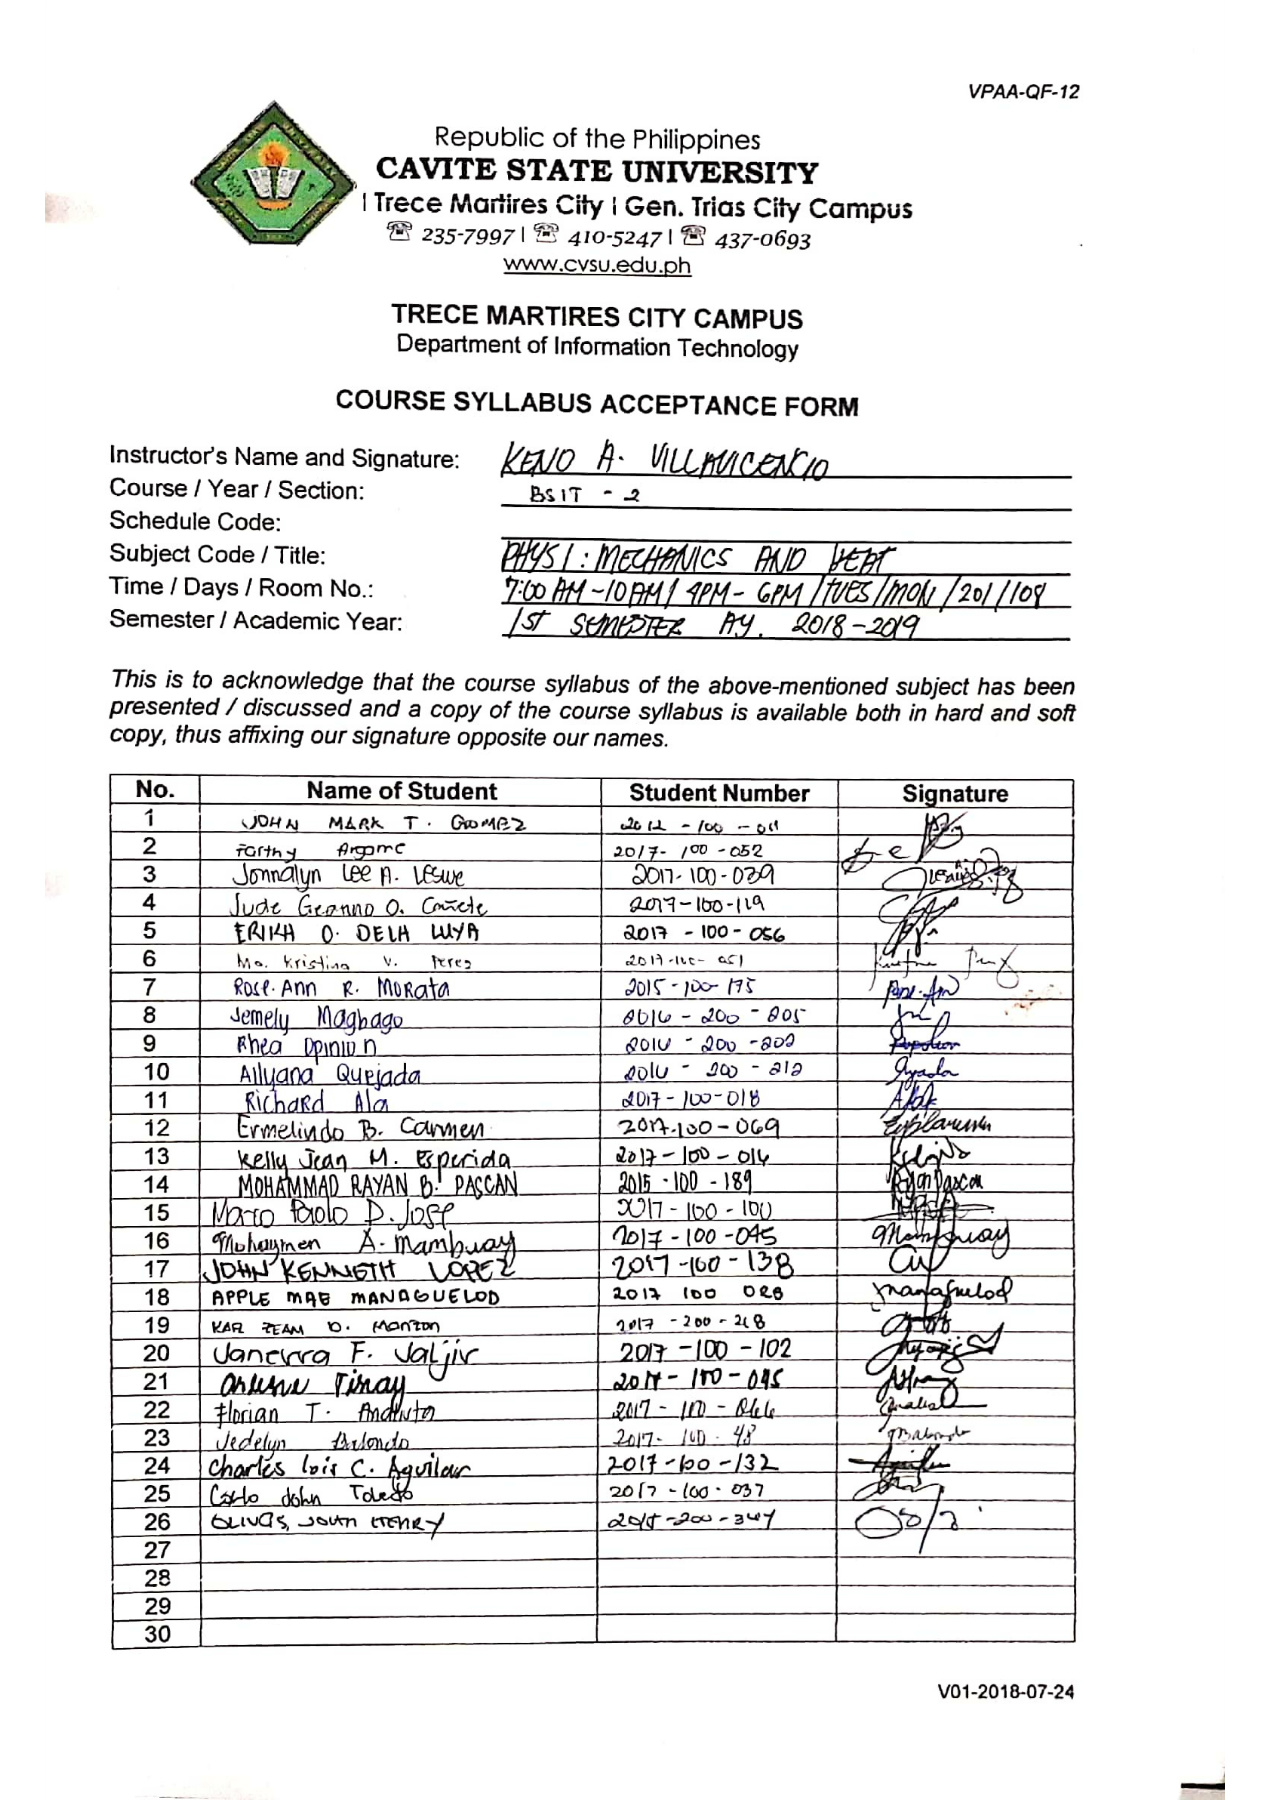 VPAA-QF-12
Republic of the Philippines
CAVITE STATE UNIVERSITY
| Trece Martires City | Gen. Trias City Campus
☏ 235-7997 | ☏ 410-5247 | ☏ 437-0693
www.cvsu.edu.ph
TRECE MARTIRES CITY CAMPUS
Department of Information Technology
COURSE SYLLABUS ACCEPTANCE FORM
Instructor's Name and Signature: KENO A. VILLAVICENCIO
Course / Year / Section: BSIT - 2
Schedule Code:
Subject Code / Title: PHYS 1: MECHANICS AND HEAT
Time / Days / Room No.: 7:00 AM - 10 AM / 4PM - 6PM / TUES / MON / 201 / 108
Semester / Academic Year: 1ST SEMESTER AY. 2018-2019
This is to acknowledge that the course syllabus of the above-mentioned subject has been
presented / discussed and a copy of the course syllabus is available both in hard and soft
copy, thus affixing our signature opposite our names.
No. Name of Student Student Number Signature
1 JOHN MARK T. GOMEZ 2012 - 100 - 011
2 2017- 100 -052
3 Jonnalyn Lee A. 2017-100-039
4 Jude O. Cañete 2017-100-119
5 ERIKA O. DELA 2017 - 100 - 056
6 Ma. Kristina V. Perez 2017-100- 051
7 Rose Ann R. Morata 2015-100-175
8 Jemely Magbago 2016 - 200 - 205
9 Rhea Opinion 2016 - 200 -202
10 Allyana Quejada 2016 - 200 - 212
11 Richard Ala 2017-100-018
12 Ermelindo B. Carmen 2017-100-069
13 Kelly Jean M. Esperida 2017-100-014
14 MOHAMMAD RAYAN B. PASCAN 2015-100-189 Ryan Pascan
15 Marco Paolo D. Jose 2017-100-100
16 Mohaymen A. Mambuay 2017-100-045 Mambuay
17 JOHN KENNETH LOPEZ 2017-100-138
18 APPLE MAE MANAGUELOD 2017 100 028 Managuelod
19 D. Monzon 2017 -200 - 268
20 F. 2017 -100 - 102
21 Tinay 2017 - 100 - 045
22 Florian T. Andluta 2017- 100 - 066
23 Jedelyn 2017- 100 - 48
24 Charles Lois C. Aguilar 2017-100-132
25 Carlo John Toledo 2017-100-037
26 OLIVAS, JOHN HENRY 2015-200-347
27
28
29
30
V01-2018-07-24